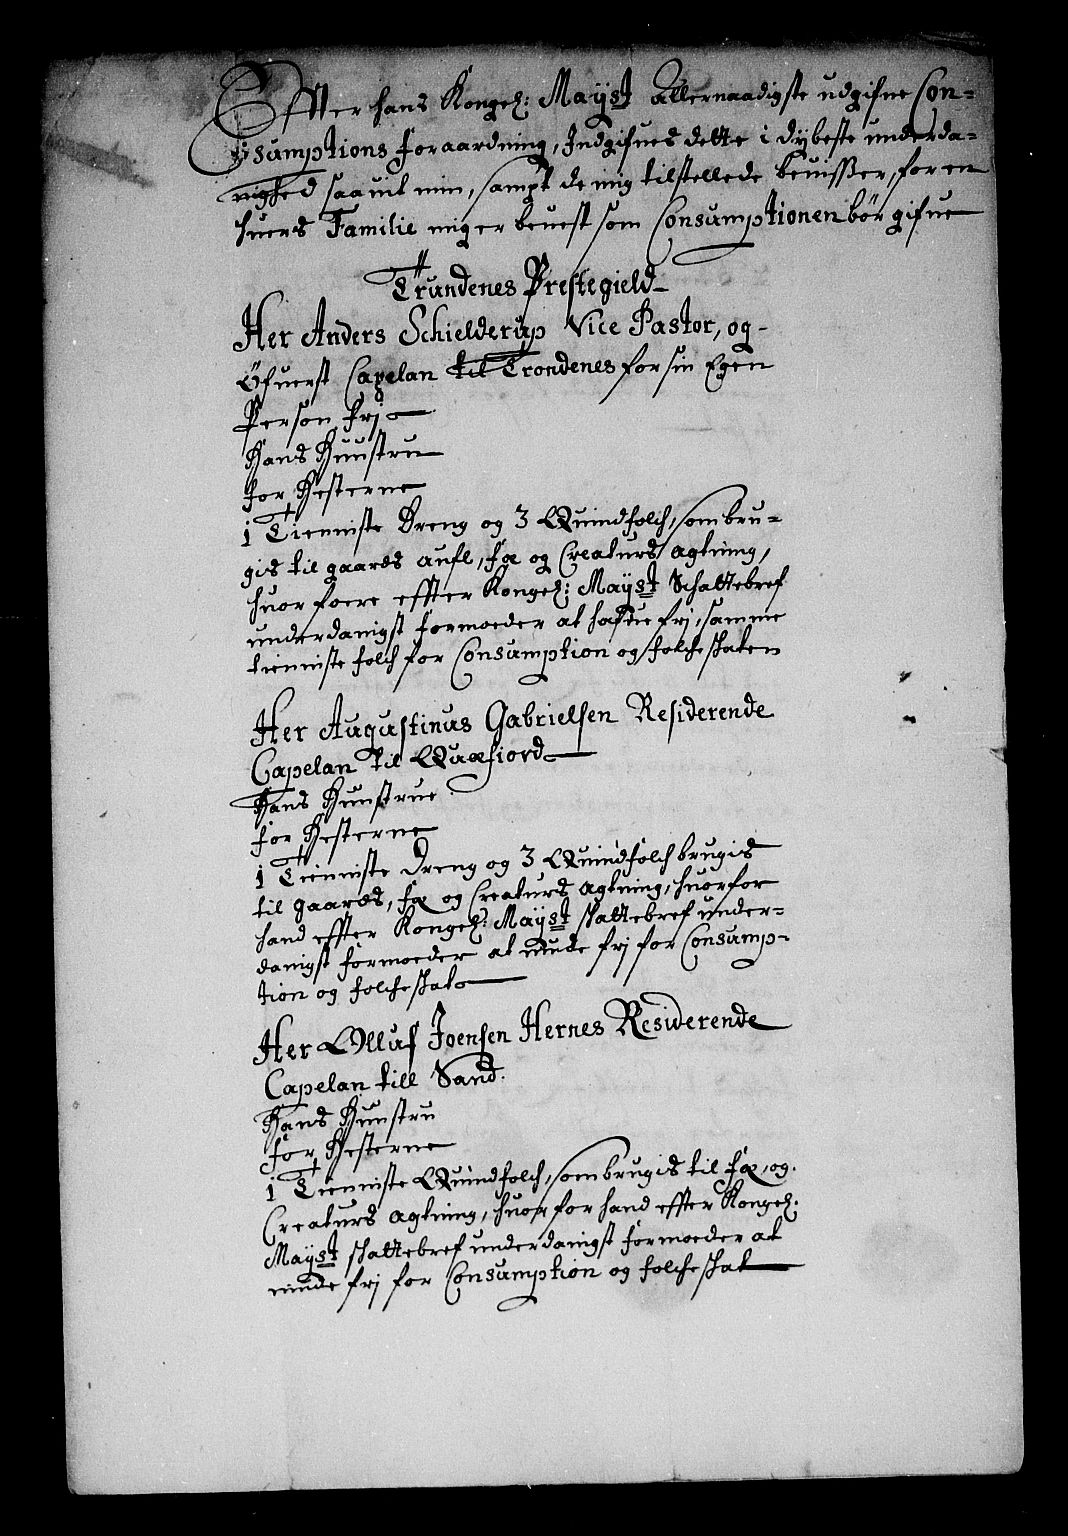 Effter hans Kongel: Mayst Allernaadigste udgifne Con-
sumptions foraardning, Indgifues dette i dybeste underda-
nighed saauit min, sampt de mig tilstellede beuisser, for en
huers Familie mig er beuest som Consumptionen bör gifue
Trundenes Prestegield
Her Anders Schielderup Vice Pastor, og
Öfuerst Capelan til Trondenes for sin Egen
Person fri
Hans Huustru
for Hesterne
1 Tienniste Dreng og 3 Quindfolch, som bru-
gis til gaards aufl, fæ og Creaturs agtning,
huor foere effter Kongel: Mayst Schattebref
underdanigst formoeder at hafue fri, samme
tienniste folch for Consumption og folcheskaten
Her Augustinus Gabrielsen Residerende
Capelan til Quæfiord
Hans Hunstrue
for Hesterne
1 Tienniste Dreng og 3 Quindfolch brugis
til gaards, fæ og Creaturs Agtning, huorfor
hand effter Kongel: Mayst skattebref under-
danigst formoeder at niude fri for Consump-
tion og folcheskat
Her Olluf Joensen Hernes Residerende
Capelan till Sand.
Hans Hunstru
for Hesterne
1 Tienniste Quindfolch, som brugis til fæ, og
Creaturs agtning, huor for hand effter Kongel:
Mayst skattebref underdanigst formoeder at
niude fri for Consumption og folcheskat